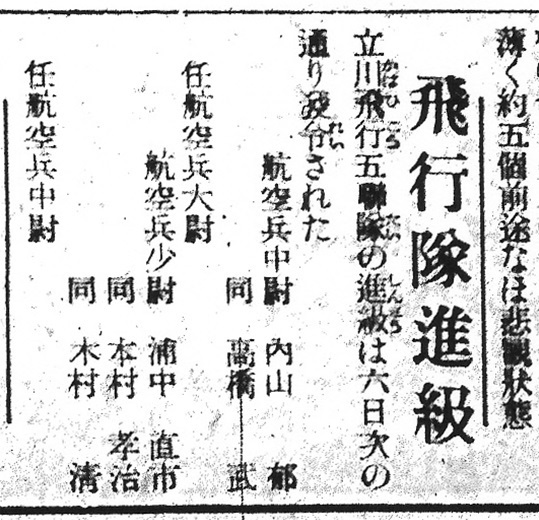 薄く約五個前途なほ悲観状態
飛行隊進級
立川飛行五聯隊の進級は六日次の
通り発令された
航空兵中尉 内山 郁
同 高橋 武
任航空兵大尉
航空兵少尉 浦中 直市
同 本村 孝治
同 木村 清
任航空兵中尉